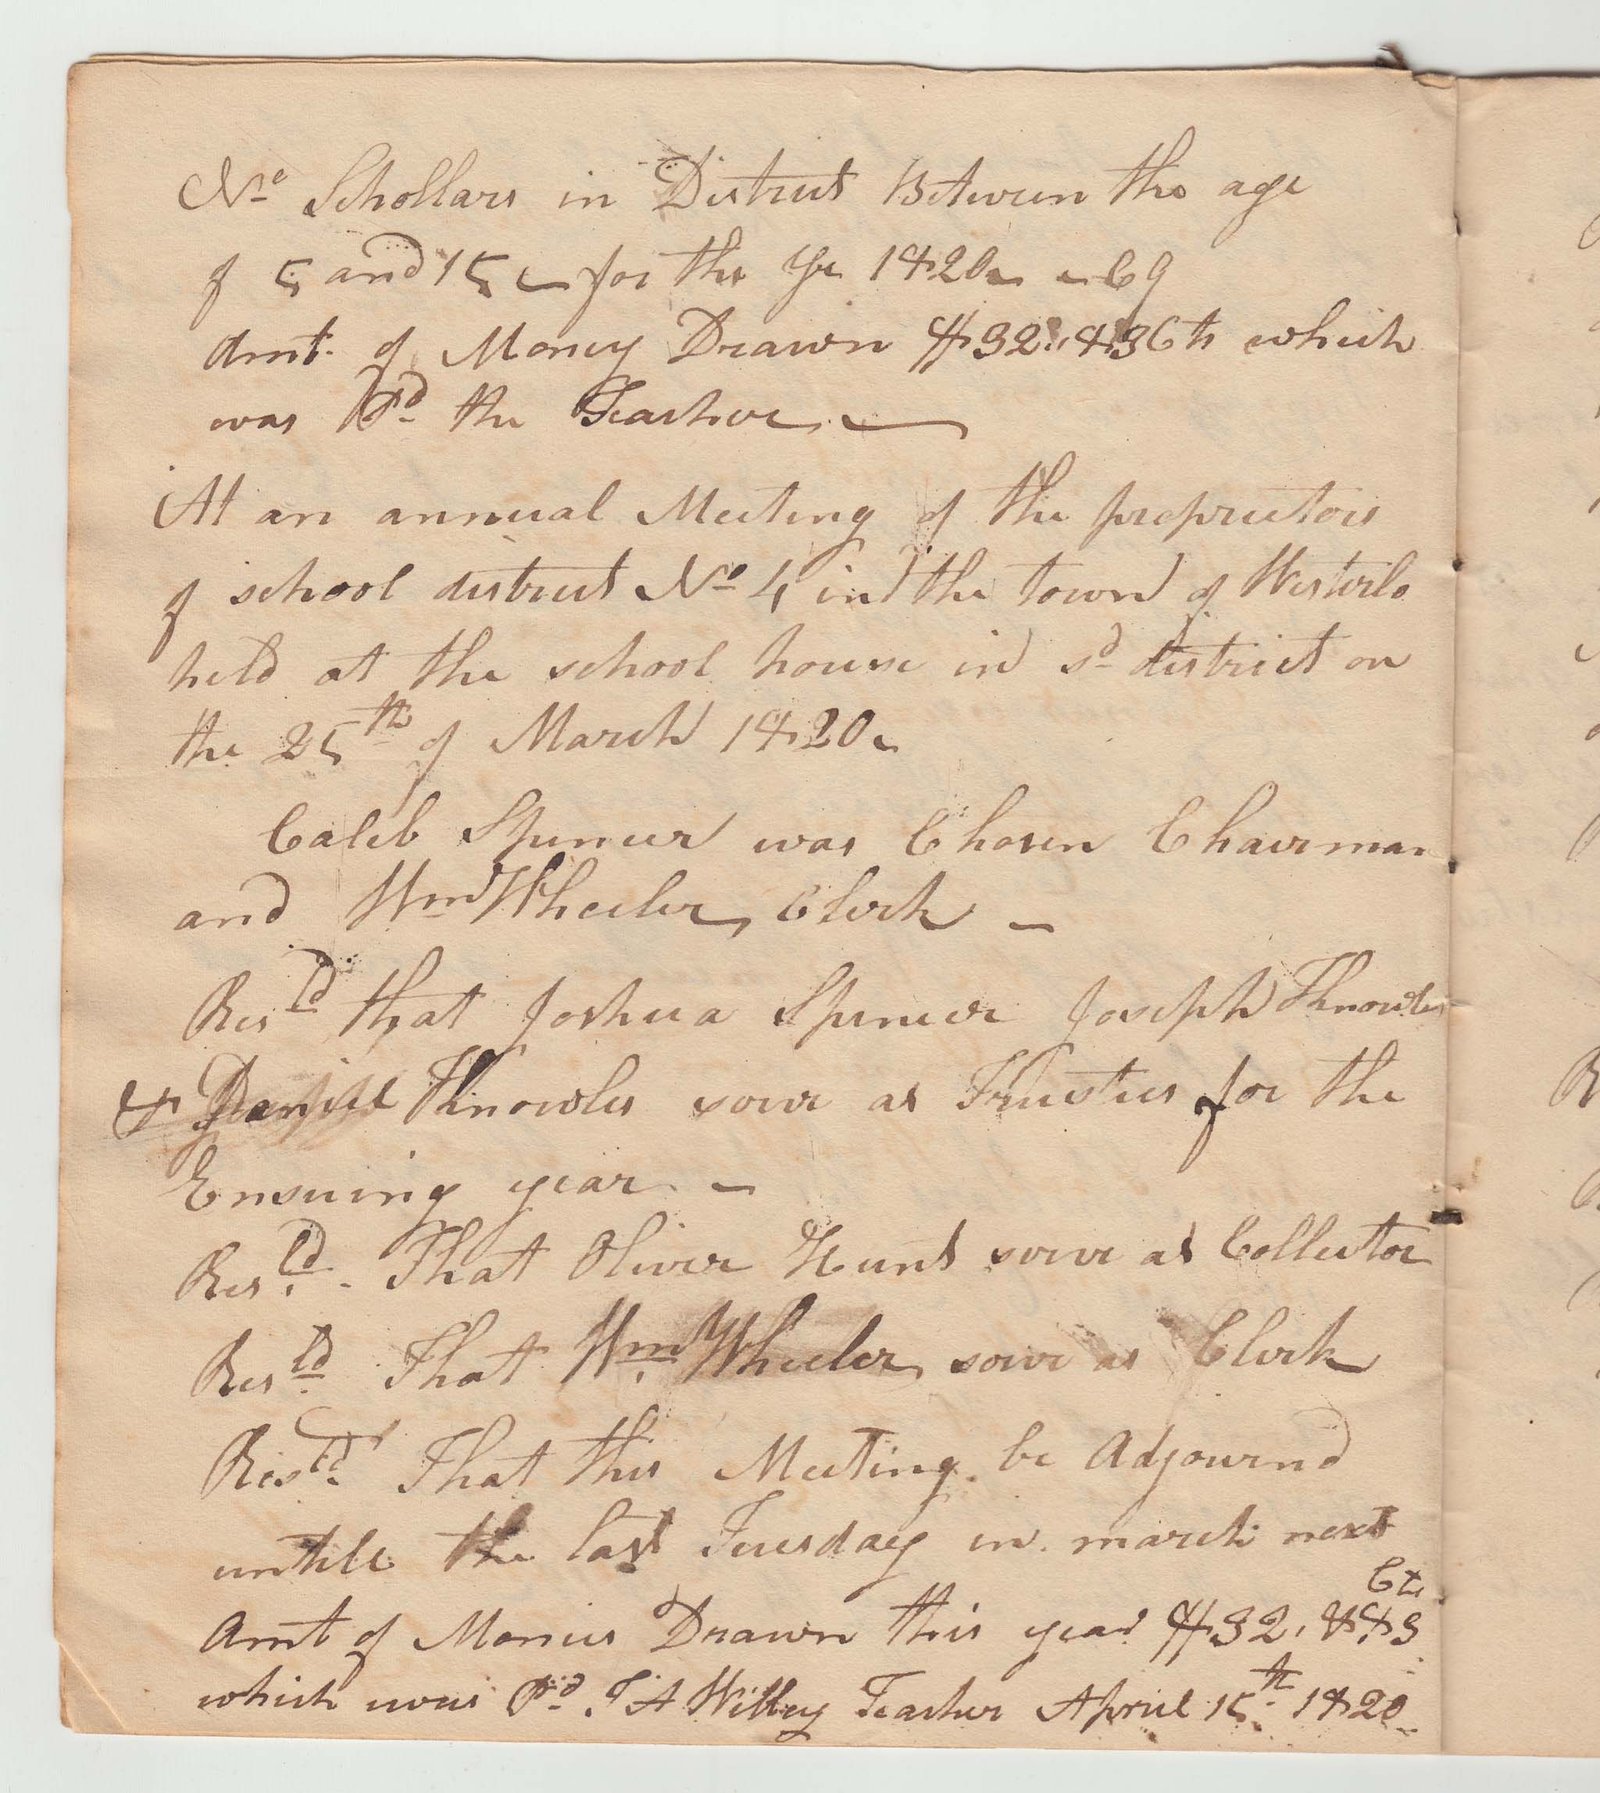 No Schollars in District Between the age
of 5 and 15 for the Yr 1820 69
Amt. of Money Drawn $32..83 Cts which
was Pd the Teacher
At an annual Meeting of the proprietors
of school district No 4 in the town of Westerlo
held at the school house in sd district on
the 25th of March 1820
Caleb Spencer was Chosen Chairman
and Wm Wheeler Clerk
Resld that Joshua Spencer Joseph Knowles
& Daniel Knowles serve as Trustees for the
Ensuing year
Resld. That Oliver Hunt serve as Collector
Resld That Wm Wheeler serve as Clerk
Resld That this Meeting be Adjournd
untill the last Tuesday in march next
Cts
Amt of Monies Drawn this year $32. 83
which was Pd. Teacher April 15th 1820